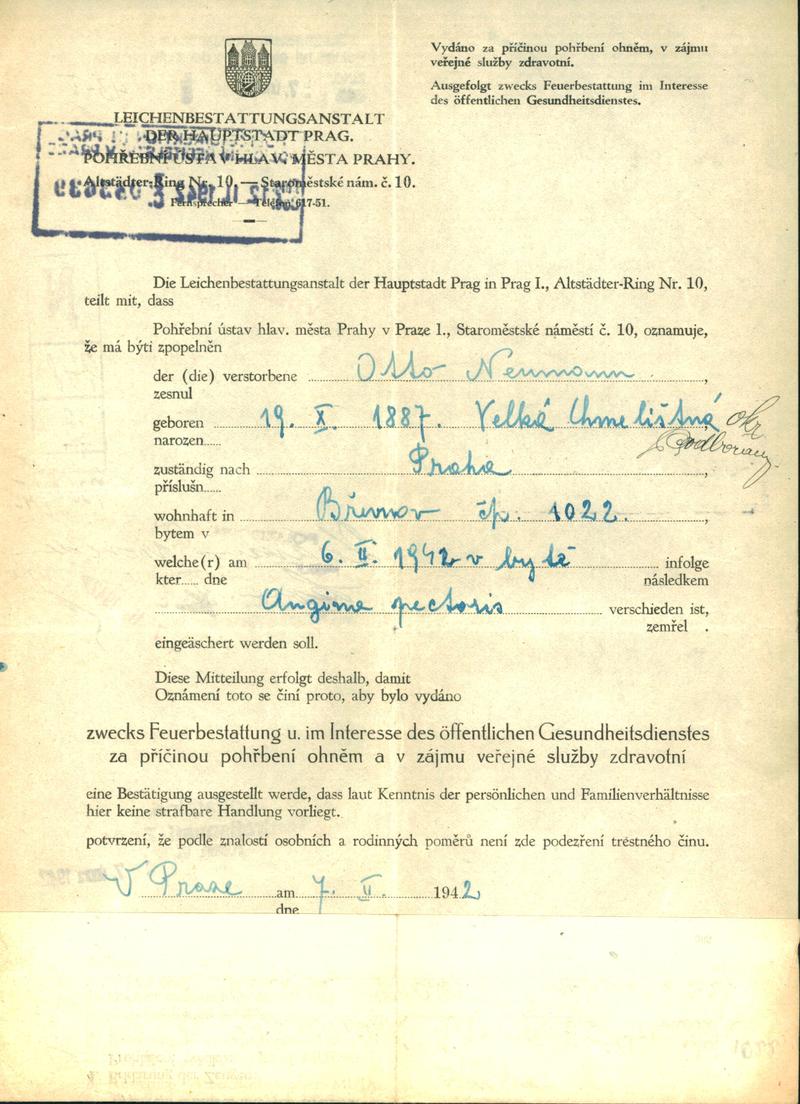 Vydáno za příčinou pohřbení ohněm, v zájmu
veřejné služby zdravotní.
Ausgefolgt zwecks Feuerbestattung im Interesse
des öffentlichen Gesundheitsdienstes.
LEICHENBESTATTUNGSANSTALT
DER HAUPTSTADT PRAG.
POHŘEBNÍ ÚSTAV HLAV. MĚSTA PRAHY.
Altstädter-Ring Nr. 10. — Staroměstské nám. č. 10.
Fernsprecher — Telefon 617-51.
Die Leichenbestattungsanstalt der Hauptstadt Prag in Prag I., Altstädter-Ring Nr. 10,
teilt mit, dass
Pohřební ústav hlav. města Prahy v Praze I., Staroměstské náměstí č. 10, oznamuje,
že má býti zpopelněn
der (die) verstorbene Otto Neumann,
zesnul
geboren 19. X. 1887. Velká Chmelištná, okr.
narozen...... Podbořany
zuständig nach Praha,
příslušn......
wohnhaft in Břevnov čp. 1022.,
bytem v
welche(r) am 6. II. 1942 v bytě infolge
kter...... dne následkem
Angina pectoris verschieden ist,
zemřel .
eingeäschert werden soll.
Diese Mitteilung erfolgt deshalb, damit
Oznámení toto se činí proto, aby bylo vydáno
zwecks Feuerbestattung u. im Interesse des öffentlichen Gesundheitsdienstes
za příčinou pohřbení ohněm a v zájmu veřejné služby zdravotní
eine Bestätigung ausgestellt werde, dass laut Kenntnis der persönlichen und Familienverhältnisse
hier keine strafbare Handlung vorliegt.
potvrzení, že podle znalostí osobních a rodinných poměrů není zde podezření trestného činu.
V Praze am 7. II. 1942
dne